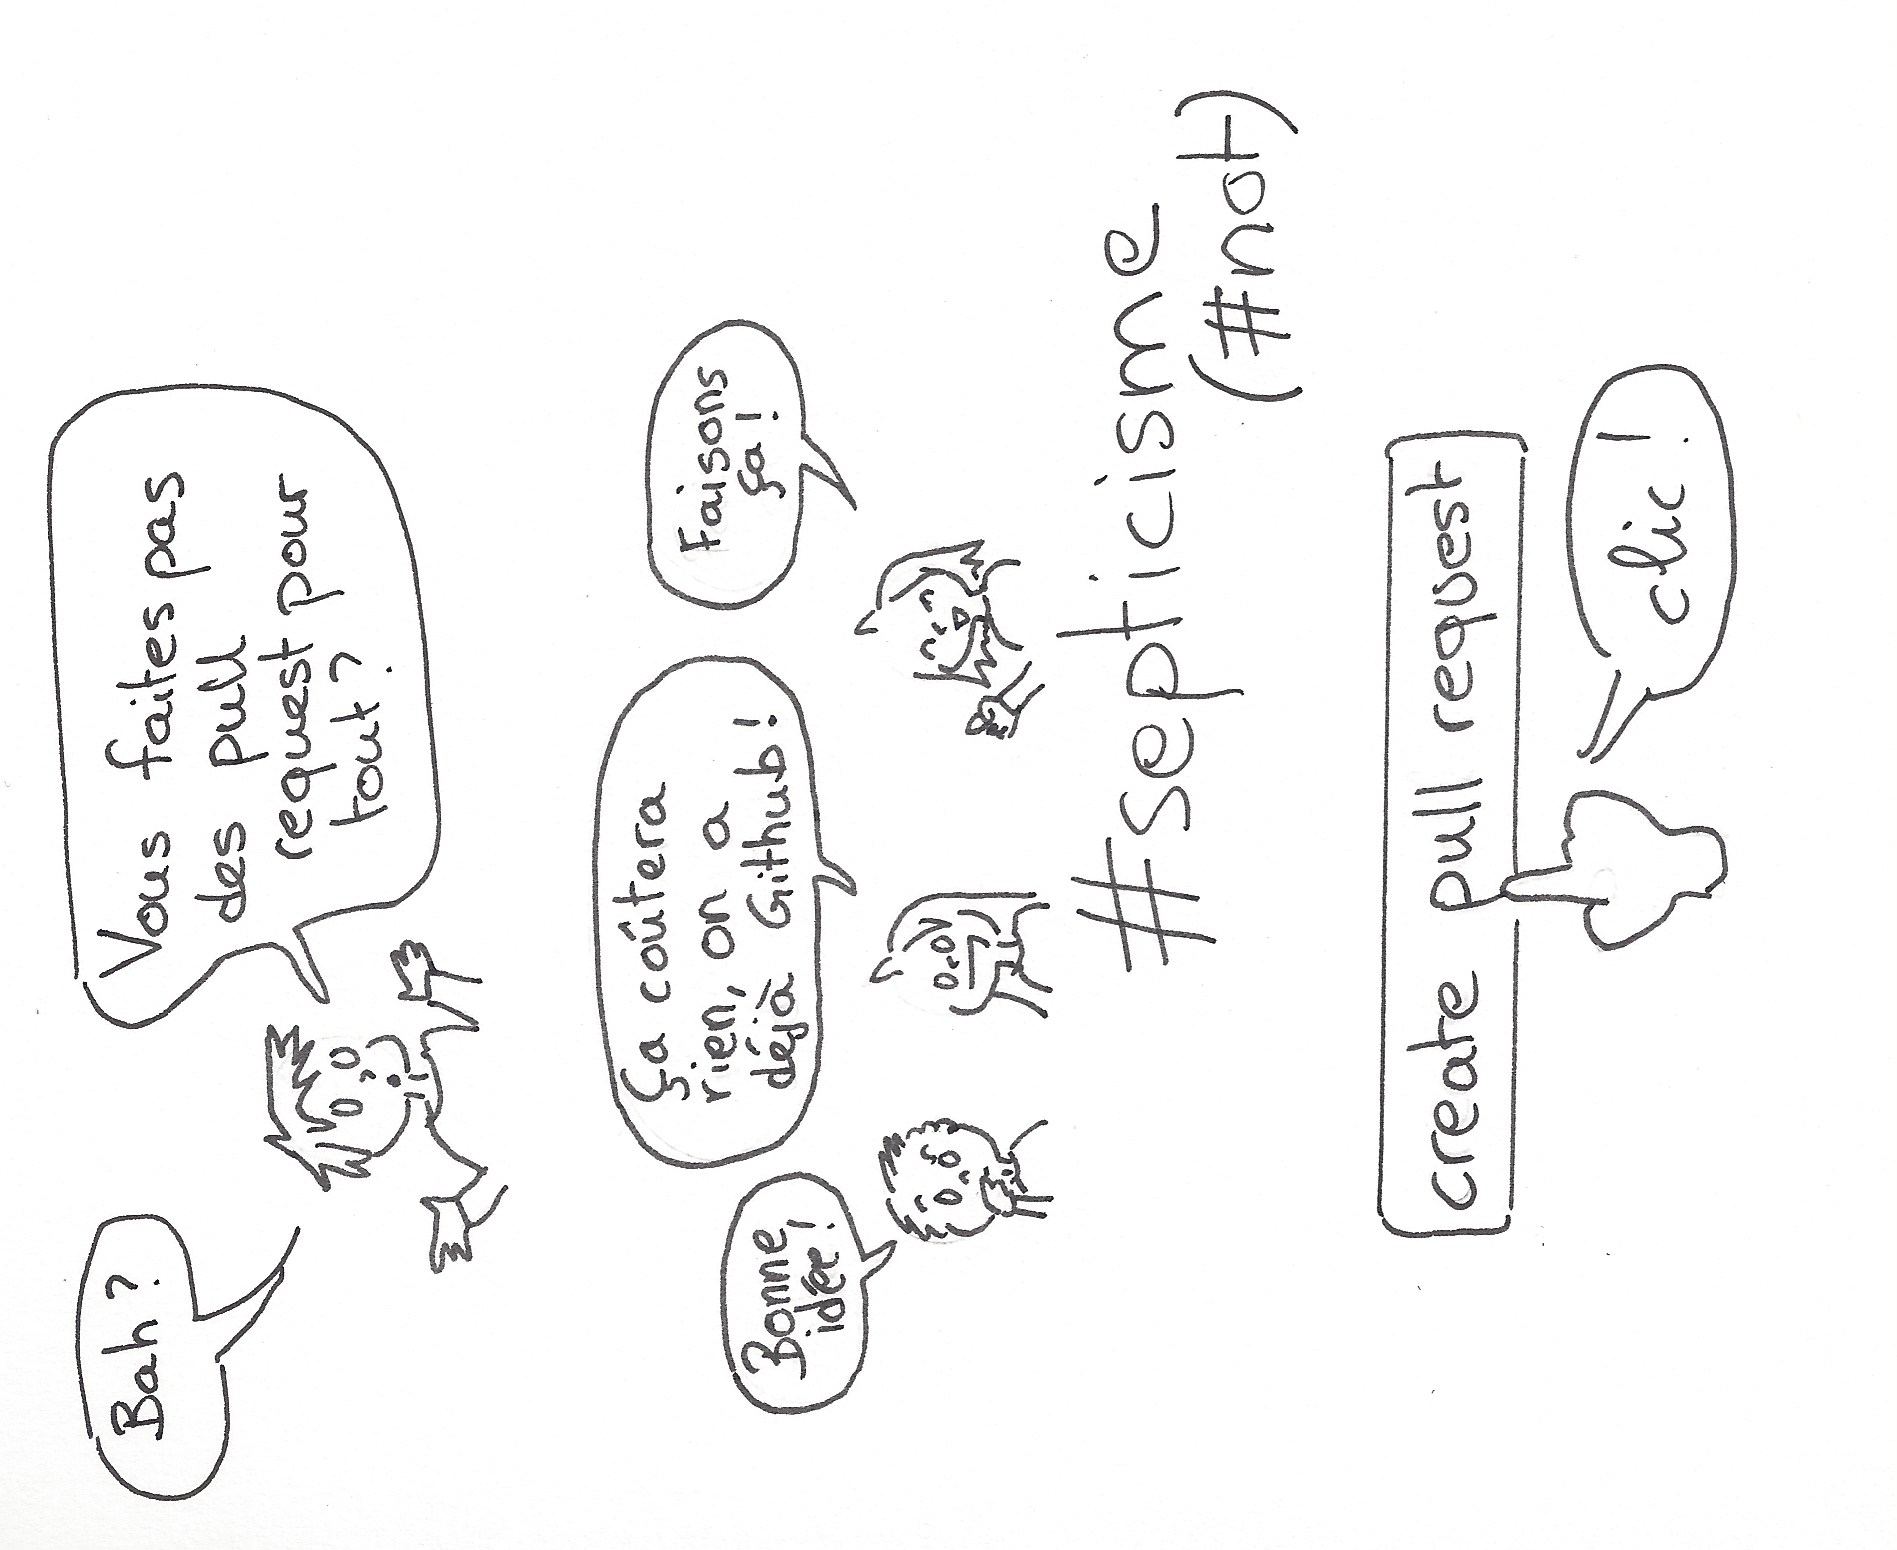 Bah ?
Vous faites pas
des pull
request pour
tout ?
Bonne
idée !
Ça coûtera
rien, on a
déjà Github !
Faisons
ça !
#septicisme
(#not)
create pull request
clic !